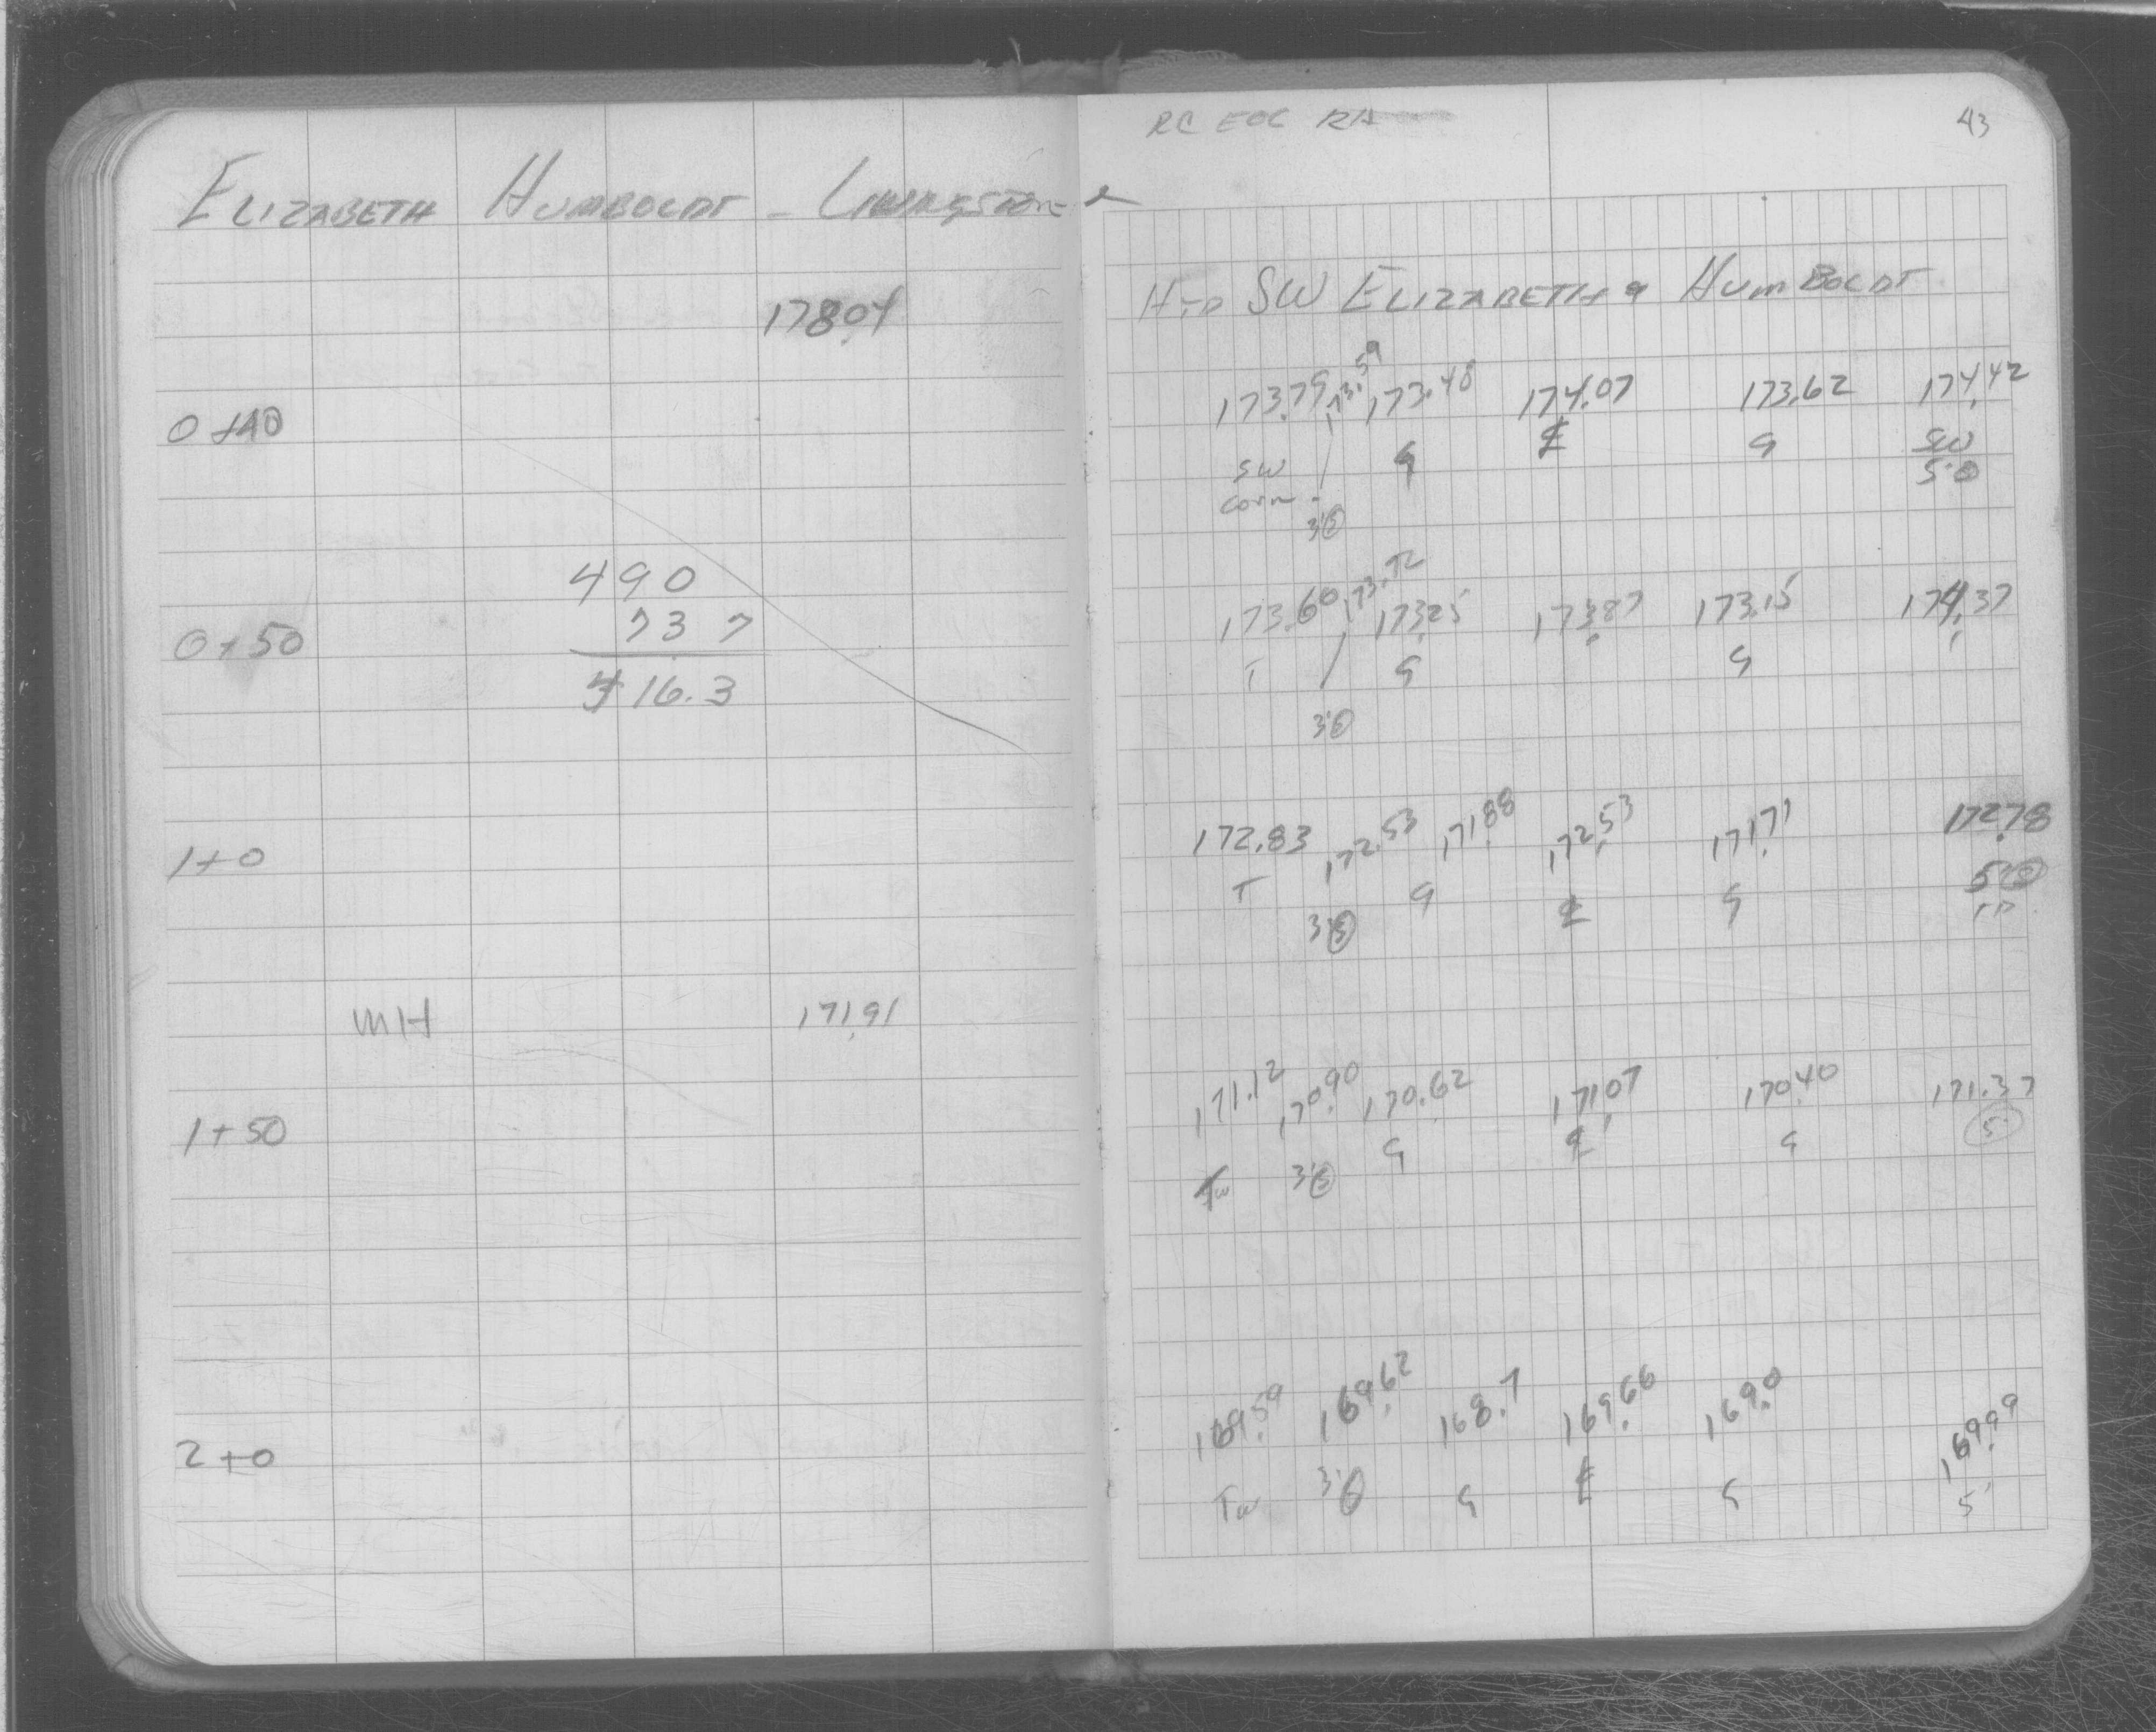 RC EOC RA 43
ELIZABETH HUMBOLDT - LIVINGSTONE
178.04
HYD SW ELIZABETH & HUMBOLDT
0+40 173.79 173.59 173.48 174.07 173.62 174.42
SW G ℄ G SW
corn 5'
3'
490
0+50 737 173.60 173.72 173.25 173.87 173.15 174.37
T G G
416.3
3'
1+0 172.83 172.53 171.88 172.53 171.71 172.78
T 3' G ℄ G 5'
MH 171.91
1+50 171.12 170.90 170.62 171.07 170.40 171.37
Tw 3' G ℄ G 5'
2+0 169.59 169.62 168.7 169.66 169.0 169.99
Tw 3' G ℄ G 5'